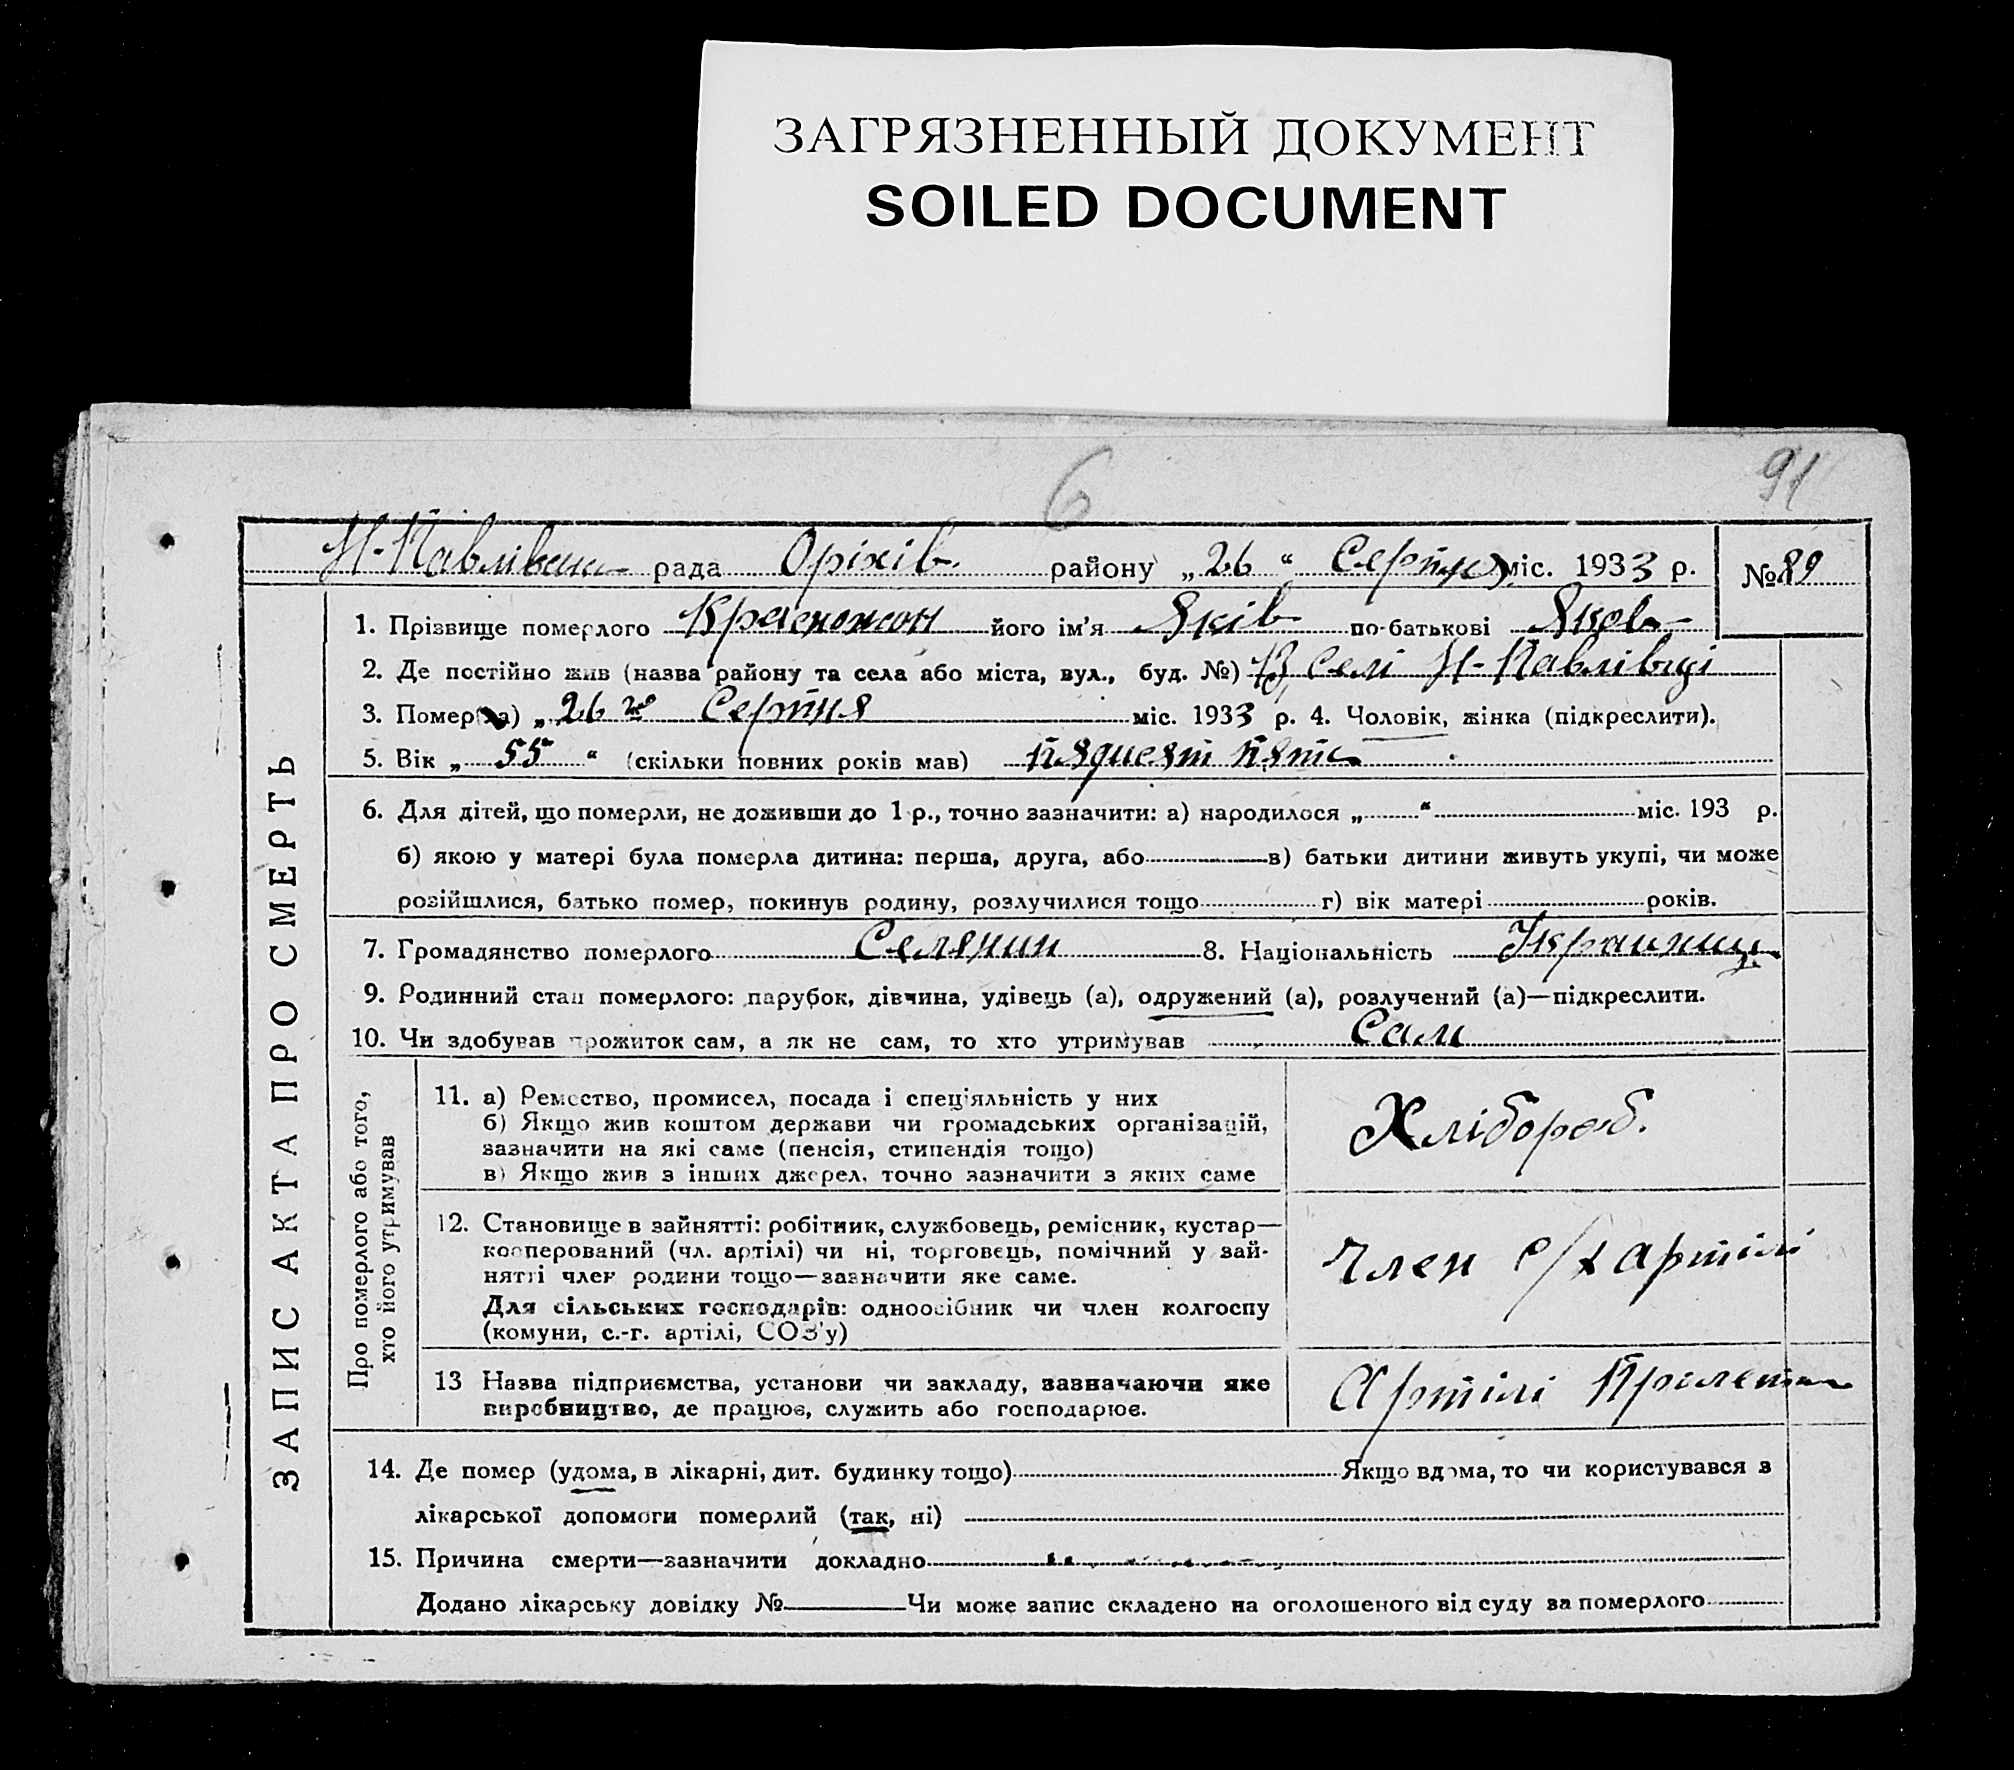 ЗАГРЯЗНЕННЫЙ ДОКУМЕНТ
SOILED DOCUMENT
6
91
Н-Павлівська рада Оріхів. району „26“ Серпня міс. 1933 р. №89
1. Прізвище померлого його ім'я Яків по-батькові Яков
2. Де постійно жив (назва району та села або міста, вул., буд. №) В селі Н-Павлівці
3. Помер(ла) „26го Серпня міс. 1933 р. 4. Чоловік, жінка (підкреслити).
5. Вік „55“ (скільки повних років мав) пядцеят пять
6. Для дітей, що померли, не доживши до 1 р., точно зазначити: а) народилося „ “ міс. 193 р.
б) якою у матері була померла дитина: перша, друга, або в) батьки дитини живуть укупі, чи може
розійшлися, батько помер, покинув родину, розлучилися тощо г) вік матері років.
7. Громадянство померлого Селянин 8. Національність Украинец
9. Родинний стан померлого: парубок, дівчина, удівець (а), одружений (а), розлучений (а)—підкреслити.
10. Чи здобував прожиток сам, а як не сам, то хто утримував Сам
ЗАПИС АКТА ПРО СМЕРТЬ
Про померлого або того,
хто його утримував
11. а) Ремество, промисел, посада і спеціяльність у них
б) Якщо жив коштом держави чи громадських організацій,
зазначити на які саме (пенсія, стипендія тощо)
в) Якщо жив з інших джерел, точно зазначити з яких саме
Хлібороб.
12. Становище в зайнятті: робітник, службовець, ремісник, кустар—
кооперований (чл. артілі) чи ні, торговець, помічний у зай-
нятті член родини тощо—зазначити яке саме.
Для сільських господарів: одноосібник чи член колгоспу
(комуни, с.-г. артілі, СОЗ'у)
Член с/х артілі
13 Назва підприємства, установи чи закладу, зазначаючи яке
виробництво, де працює, служить або господарює.
Артілі
14. Де помер (удома, в лікарні, дит. будинку тощо) Якщо вдома, то чи користувався з
лікарської допомоги померлий (так, ні)
15. Причина смерти—зазначити докладно
Додано лікарську довідку № Чи може запис складено на оголошеного від суду за померлого